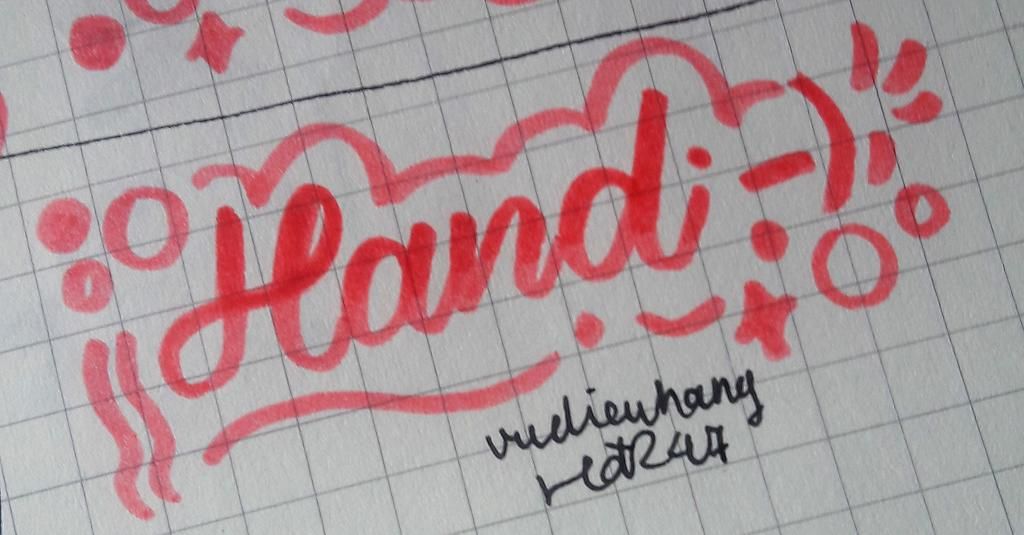 Handi
vudieuhang
redt247